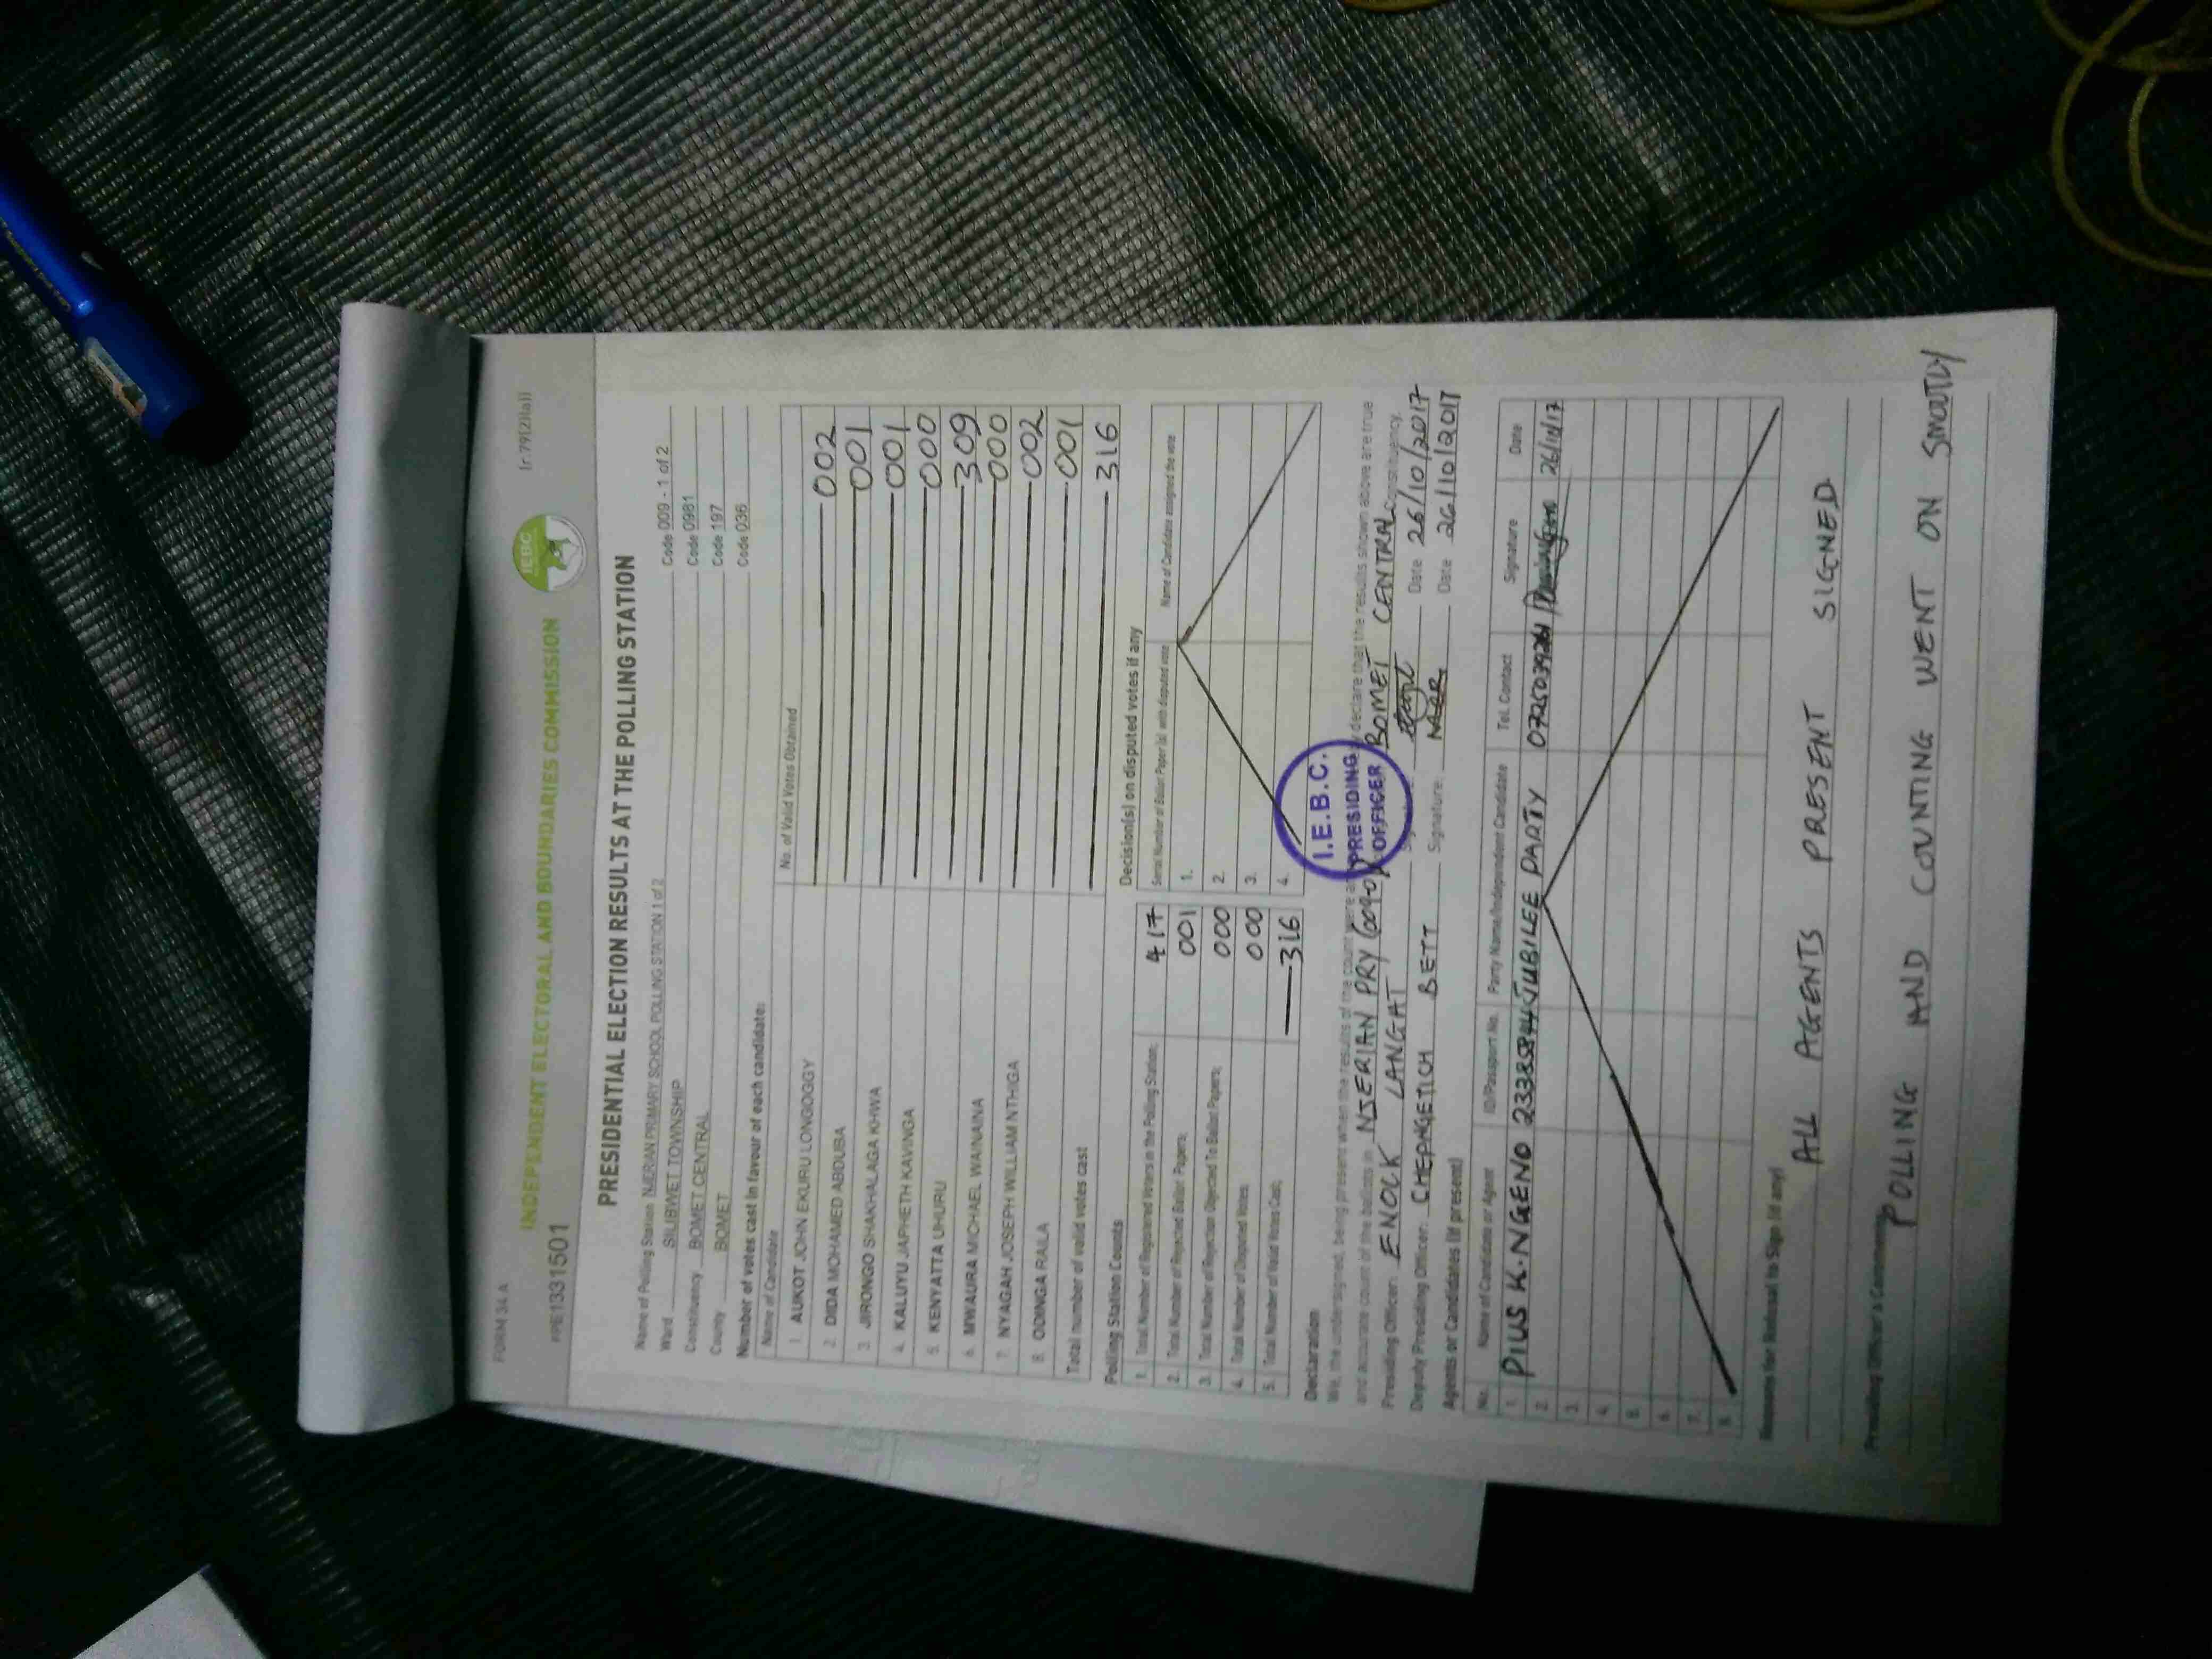 FORM 34A
(r.79(2)(a))
INDEPENDENT ELECTORAL AND BOUNDARIES COMMISSION
IEBC
1331501
PRESIDENTIAL ELECTION RESULTS AT THE POLLING STATION
Name of Polling Station NJERIAN PRIMARY SCHOOL POLLING STATION 1 of 2 Code 009 - 1 of 2
Ward SILIBWET TOWNSHIP Code 0981
Constituency BOMET CENTRAL Code 197
County BOMET Code 036
Number of votes cast in favour of each candidate:
Name of Candidate No. of Valid Votes Obtained
1. AUKOT JOHN EKURU LONGOGGY 002
2. DIDA MOHAMED ABDUBA 001
3. JIRONGO SHAKHALAGA KHWA 001
4. KALUYU JAPHETH KAVINGA 000
5. KENYATTA UHURU 309
6. MWAURA MICHAEL WAINAINA 000
7. NYAGAH JOSEPH WILLIAM NTHIGA 002
8. ODINGA RAILA 001
Total number of valid votes cast 316
Polling Station Counts
1. Total Number of Registered Voters in the Polling Station; 417
2. Total Number of Rejected Ballot Papers; 001
3. Total Number of Rejection Objected To Ballot Papers; 000
4. Total Number of Disputed Votes; 000
5. Total Number of Valid Votes Cast; 316
Decision(s) on disputed votes if any
Serial Number of Ballot Paper (s) with disputed vote Name of Candidate assigned the vote
1.
2.
3.
4.
I.E.B.C.
PRESIDING
OFFICER
Declaration
We, the undersigned, being present when the results of the count were declare that the results shown above are true
and accurate count of the ballots in NJERIAN PRY BOMET CENTRAL Constituency.
Presiding Officer: ENOCK LANGAT Date 26/10/2017
Deputy Presiding Officer: CHEPNGETICH BETT Signature: Date 26/10/2017
Agents or Candidates (if present)
No. Name of Candidate or Agent ID/Passport No. Party Name/Independent Candidate Tel. Contact Signature Date
1. PIUS K. NGENO JUBILEE PARTY
2.
3.
4.
5.
6.
7.
8.
Reasons for Refusal to Sign (if any)
ALL AGENTS PRESENT SIGNED
Presiding Officer's Comments
POLLING AND COUNTING WENT ON SMOOTLY